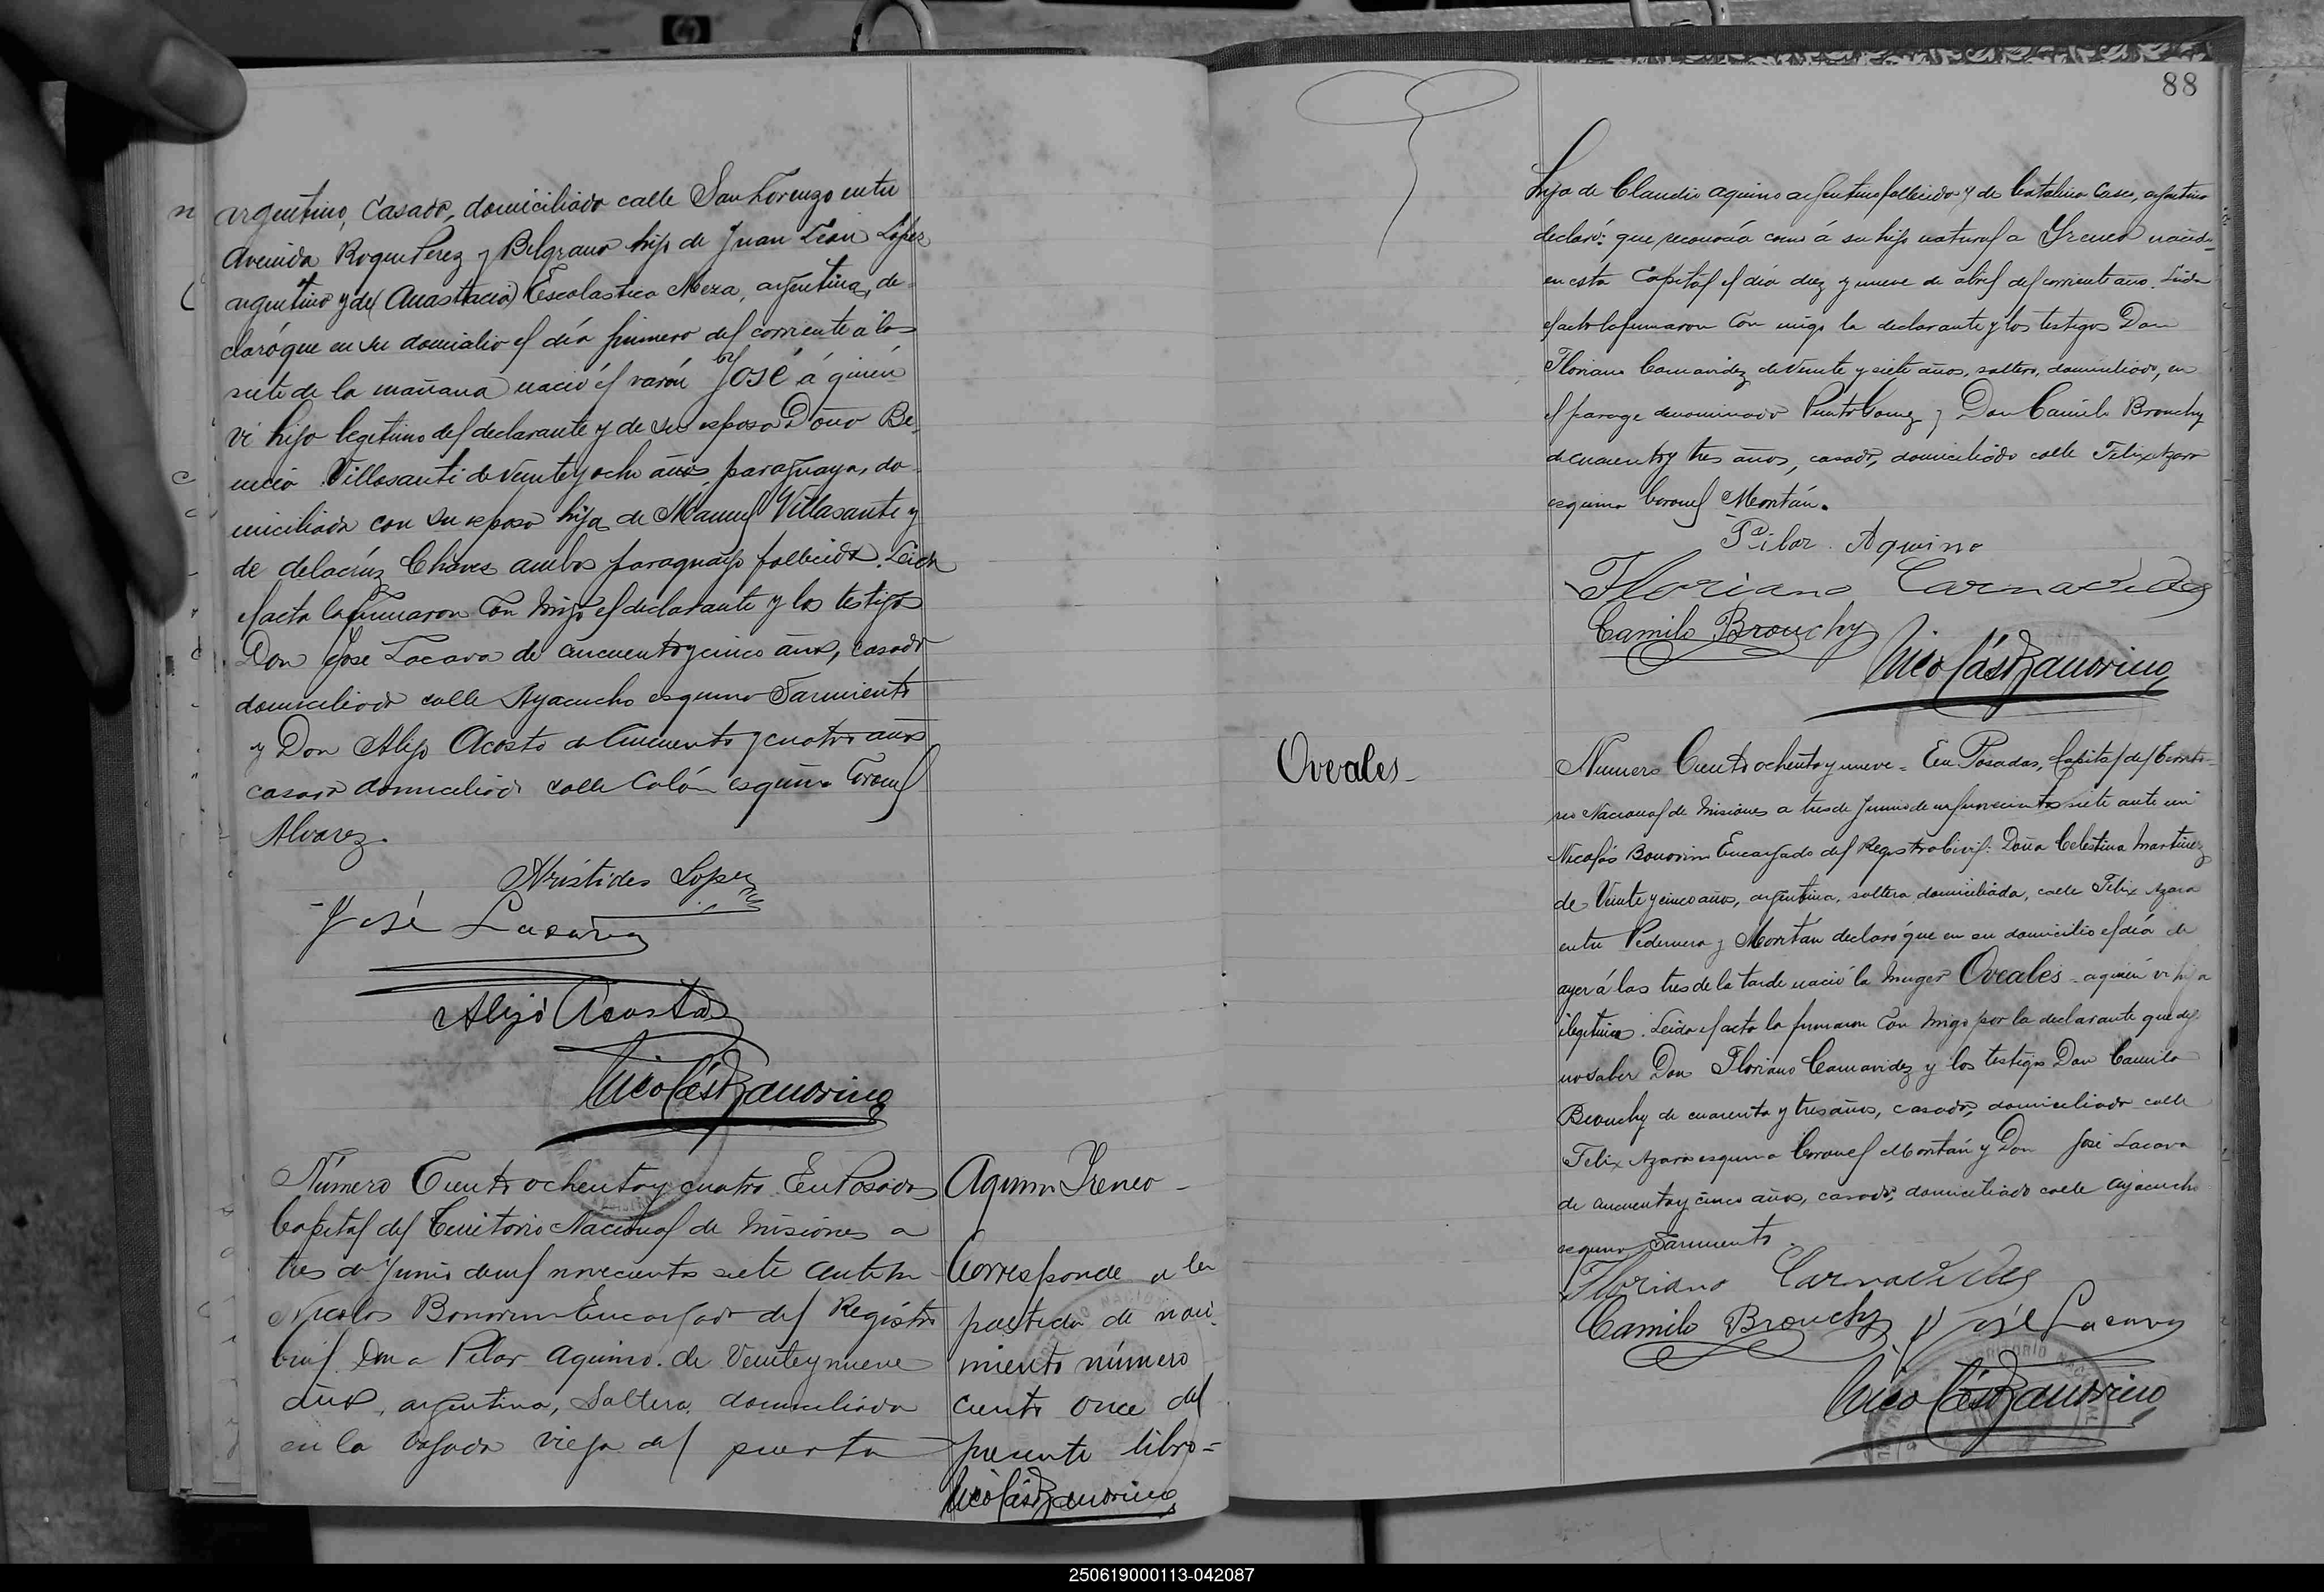 argentino, Casado, domiciliado calle San Lorenzo entre
Avenida Roque Perez y Belgrano hijo de Juan Leon Lopez
argentino y de (Anastacia) Escolastica Meza, argentina, de-
claró que en su domicilio el día primero del corriente a las
siete de la mañana nació el varón José á quién
vi hijo legitimo del declarante y de su esposa Doña Be-
nicia Villasanti de veinte y ocho años, paraguaya, do-
miciliada con su esposo hija de Manuel Villasante y
de delacrúz Chaves ambos paraguayos fallecidos. Leida
el acta la firmaron con migo el declarante y los testigos
Don José Lacava de cincuenta y cinco años, casado
domiciliado calle Ayacucho esquina Sarmiento
y Don Alejo Acosta de Cincuenta y cuatro años
casado domiciliado calle Colón esquina Coronel
Alvarez.
Arístides Lopez
José Lacava
Alejo Acosta
Nicolás Bonorino
Número Ciento ochenta y cuatro. En Posadas
Capital del Territorio Nacional de Misiones a
tres de Junio de mil novecientos siete ante mi
Nicolas Bonorino Encargado del Registro
Civil Doña Pilar Aquino. de Veinte y nueve
años, argentina, Soltera, domiciliada
en la bajada vieja del puerto
Aquino Ireneo -
Corresponde a la
partida de naci-
miento número
ciento once del
presente libro =
Nicolás Bonorino
88
hija de Claudio Aquino argentino fallecido y de Catalina Case, argentina
declaró: que reconocía como á su hijo natural a Ireneo nacido
en esta Capital el día diez y nueve de abril del corriente año. Leida
el acta la firmaron Con migo la declarante y los testigos Don
Floriano Carnavidez de Veinte y siete años, soltero, domiciliado, en
el parage denominado Punta Gomez y Don Camilo Brouchy
de cuarenta y tres años, casado, domiciliado calle Felix Azara
esquina Coronel Moritán.
Pilar Aquino
Floriano Carnavides
Camilo Brouchy
Nicolás Bonorino
Oveales -
Número Ciento ochenta y nueve = En Posadas, Capital del Territo-
rio Nacional de Misiones a tres de Junio de mil novecientos siete ante mi
Nicolás Bonorino Encargado del Registro Civil: Doña Celestina Martinez
de Veinte y cinco años, argentina, soltera domiciliada, calle Felix Azara
entre Pedernera y Moritán declaró que en su domicilio el día de
ayer á las tres de la tarde nació la muger Oveales - a quién vi hija
ilegitima. Leida el acta la firmaron Con migo por la declarante que dijo
no saber Don Floriano Carnavidez y los testigos Don Camilo
Brouchy de cuarenta y tres años, casado, domiciliado calle
Felix Azara esquina Coronel Moritán y Don José Lacava
de cincuenta y cinco años, casado, domiciliado calle Ayacucho
esquina Sarmiento.
Floriano Carnavides
Camilo Brouchy José Lacava
Nicolás Bonorino
250619000113-042087